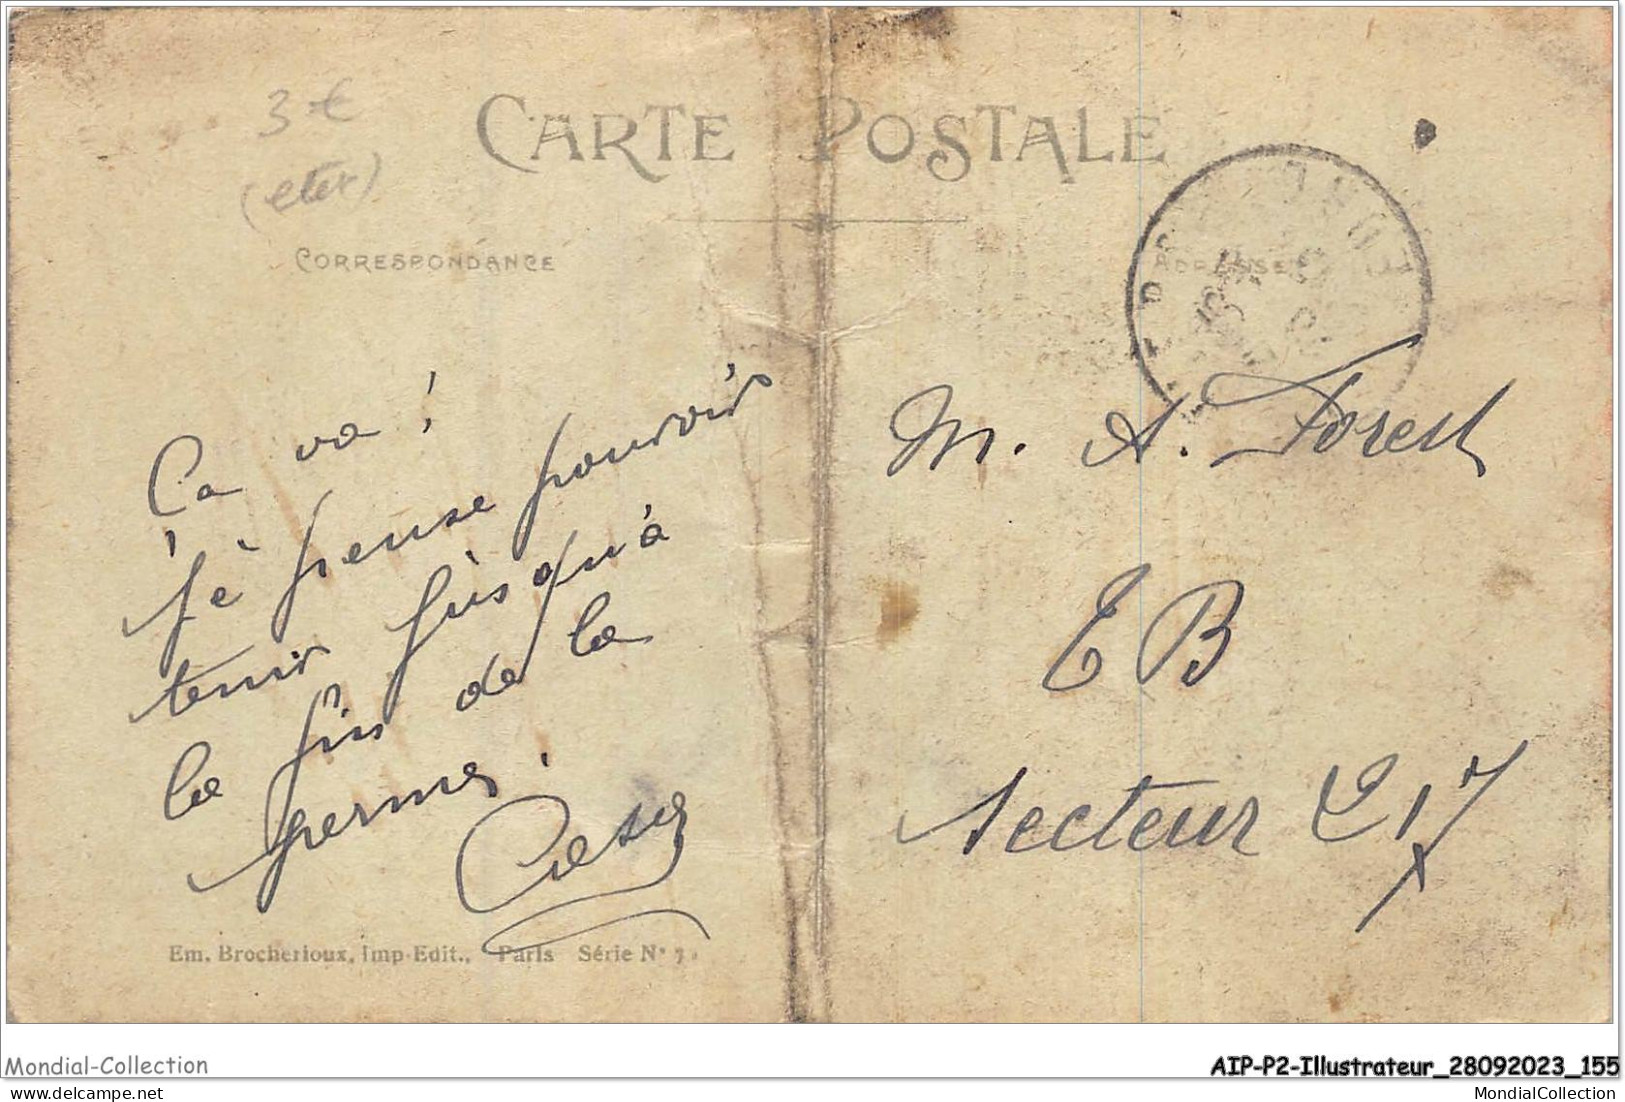 3 €
(etex)
CARTE POSTALE
CORRESPONDANCE
ADRESSE
Ça va !
Je pense pouvoir
tenir jusqu'à
la fin de la
perme.
M. A. Forest
EB
Secteur 217
Em. Brocherioux, Imp-Edit., Paris Série N°
Mondial-Collection
AIP-P2-Illustrateur_28092023_155
MondialCollection